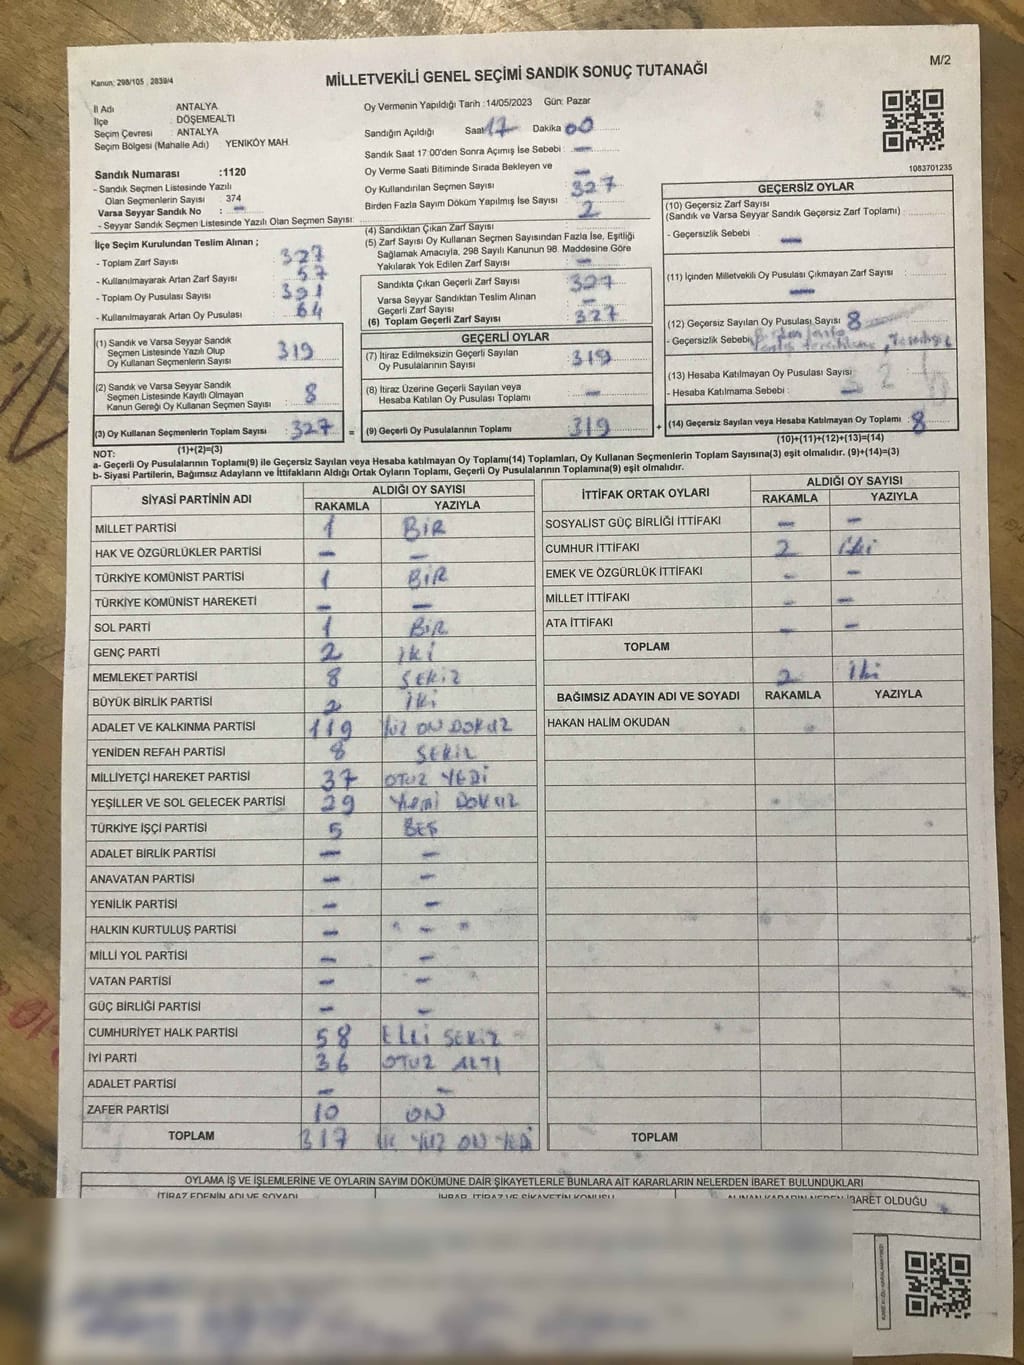 M/2
Kanun: 298/105 , 2839/4
MİLLETVEKİLİ GENEL SEÇİMİ SANDIK SONUÇ TUTANAĞI
İl Adı : ANTALYA
İlçe : DÖŞEMEALTI
Seçim Çevresi : ANTALYA
Seçim Bölgesi (Mahalle Adı) YENİKÖY MAH.
Sandık Numarası :1120
- Sandık Seçmen Listesinde Yazılı
Olan Seçmenlerin Sayısı : 374
Varsa Seyyar Sandık No : –
- Seyyar Sandık Seçmen Listesinde Yazılı Olan Seçmen Sayısı:
Oy Vermenin Yapıldığı Tarih :14/05/2023 Gün: Pazar
Sandığın Açıldığı Saat 17 Dakika 00
Sandık Saat 17:00'den Sonra Açımış İse Sebebi : –
Oy Verme Saati Bitiminde Sırada Bekleyen ve
Oy Kullandırılan Seçmen Sayısı –
327
Birden Fazla Sayım Döküm Yapılmış İse Sayısı : 2
1083701235
İlçe Seçim Kurulundan Teslim Alınan ;
- Toplam Zarf Sayısı : 327
- Kullanılmayarak Artan Zarf Sayısı : 57
- Toplam Oy Pusulası Sayısı : 391
- Kullanılmayarak Artan Oy Pusulası : 64
(1) Sandık ve Varsa Seyyar Sandık
Seçmen Listesinde Yazılı Olup
Oy Kullanan Seçmenlerin Sayısı : 319
(2) Sandık ve Varsa Seyyar Sandık
Seçmen Listesinde Kayıtlı Olmayan
Kanun Gereği Oy Kullanan Seçmen Sayısı : 8
(3) Oy Kullanan Seçmenlerin Toplam Sayısı : 327
(1)+(2)=(3)
(4) Sandıktan Çıkan Zarf Sayısı :
(5) Zarf Sayısı Oy Kullanan Seçmen Sayısından Fazla İse, Eşitliği
Sağlamak Amacıyla, 298 Sayılı Kanunun 98. Maddesine Göre
Yakılarak Yok Edilen Zarf Sayısı : –
Sandıkta Çıkan Geçerli Zarf Sayısı : 327
Varsa Seyyar Sandıktan Teslim Alınan
Geçerli Zarf Sayısı : –
(6) Toplam Geçerli Zarf Sayısı : 327
GEÇERLİ OYLAR
(7) İtiraz Edilmeksizin Geçerli Sayılan
Oy Pusulalarının Sayısı : 319
(8) İtiraz Üzerine Geçerli Sayılan veya
Hesaba Katılan Oy Pusulası Toplamı : –
= (9) Geçerli Oy Pusulalarının Toplamı : 319
GEÇERSİZ OYLAR
(10) Geçersiz Zarf Sayısı
(Sandık ve Varsa Seyyar Sandık Geçersiz Zarf Toplamı) :
- Geçersizlik Sebebi : –
(11) İçinden Milletvekili Oy Pusulası Çıkmayan Zarf Sayısı :
–
(12) Geçersiz Sayılan Oy Pusulası Sayısı : 8
- Geçersizlik Sebebi
(13) Hesaba Katılmayan Oy Pusulası Sayısı :
- Hesaba Katılmama Sebebi :
+ (14) Geçersiz Sayılan veya Hesaba Katılmayan Oy Toplamı : 8
(10)+(11)+(12)+(13)=(14)
NOT:
a- Geçerli Oy Pusulalarının Toplamı(9) ile Geçersiz Sayılan veya Hesaba katılmayan Oy Toplamı(14) Toplamları, Oy Kullanan Seçmenlerin Toplam Sayısına(3) eşit olmalıdır. (9)+(14)=(3)
b- Siyasi Partilerin, Bağımsız Adayların ve İttifakların Aldığı Ortak Oyların Toplamı, Geçerli Oy Pusulalarının Toplamına(9) eşit olmalıdır.
SİYASİ PARTİNİN ADI ALDIĞI OY SAYISI
RAKAMLA YAZIYLA
MİLLET PARTİSİ 1 BİR
HAK VE ÖZGÜRLÜKLER PARTİSİ – –
TÜRKİYE KOMÜNİST PARTİSİ 1 BİR
TÜRKİYE KOMÜNİST HAREKETİ – –
SOL PARTİ 1 BİR
GENÇ PARTİ 2 İKİ
MEMLEKET PARTİSİ 8 SEKİZ
BÜYÜK BİRLİK PARTİSİ 2 İKİ
ADALET VE KALKINMA PARTİSİ 119 YÜZ ON DOKUZ
YENİDEN REFAH PARTİSİ 8 SEKİZ
MİLLİYETÇİ HAREKET PARTİSİ 37 OTUZ YEDİ
YEŞİLLER VE SOL GELECEK PARTİSİ 29 DOKUZ
TÜRKİYE İŞÇİ PARTİSİ 5 BEŞ
ADALET BİRLİK PARTİSİ – –
ANAVATAN PARTİSİ – –
YENİLİK PARTİSİ – –
HALKIN KURTULUŞ PARTİSİ – –
MİLLİ YOL PARTİSİ – –
VATAN PARTİSİ – –
GÜÇ BİRLİĞİ PARTİSİ – –
CUMHURİYET HALK PARTİSİ 58 ELLİ SEKİZ
İYİ PARTİ 36 OTUZ ALTI
ADALET PARTİSİ – –
ZAFER PARTİSİ 10 ON
TOPLAM 317 YÜZ ON YEDİ
İTTİFAK ORTAK OYLARI ALDIĞI OY SAYISI
RAKAMLA YAZIYLA
SOSYALIST GÜÇ BİRLİĞİ İTTİFAKI – –
CUMHUR İTTİFAKI 2 İki
EMEK VE ÖZGÜRLÜK İTTİFAKI – –
MİLLET İTTİFAKI – –
ATA İTTİFAKI – –
TOPLAM 2 İki
BAĞIMSIZ ADAYIN ADI VE SOYADI RAKAMLA YAZIYLA
HAKAN HALİM OKUDAN
TOPLAM
OYLAMA İŞ VE İŞLEMLERİNE VE OYLARIN SAYIM DÖKÜMÜNE DAİR ŞİKAYETLERLE BUNLARA AİT KARARLARIN NELERDEN İBARET BULUNDUKLARI
İTİRAZ EDENİN ADI VE SOYADI İHBAR, İTİRAZ VE ŞİKAYETİN KONUSU ALINAN KARARIN NEDEN İBARET OLDUĞU